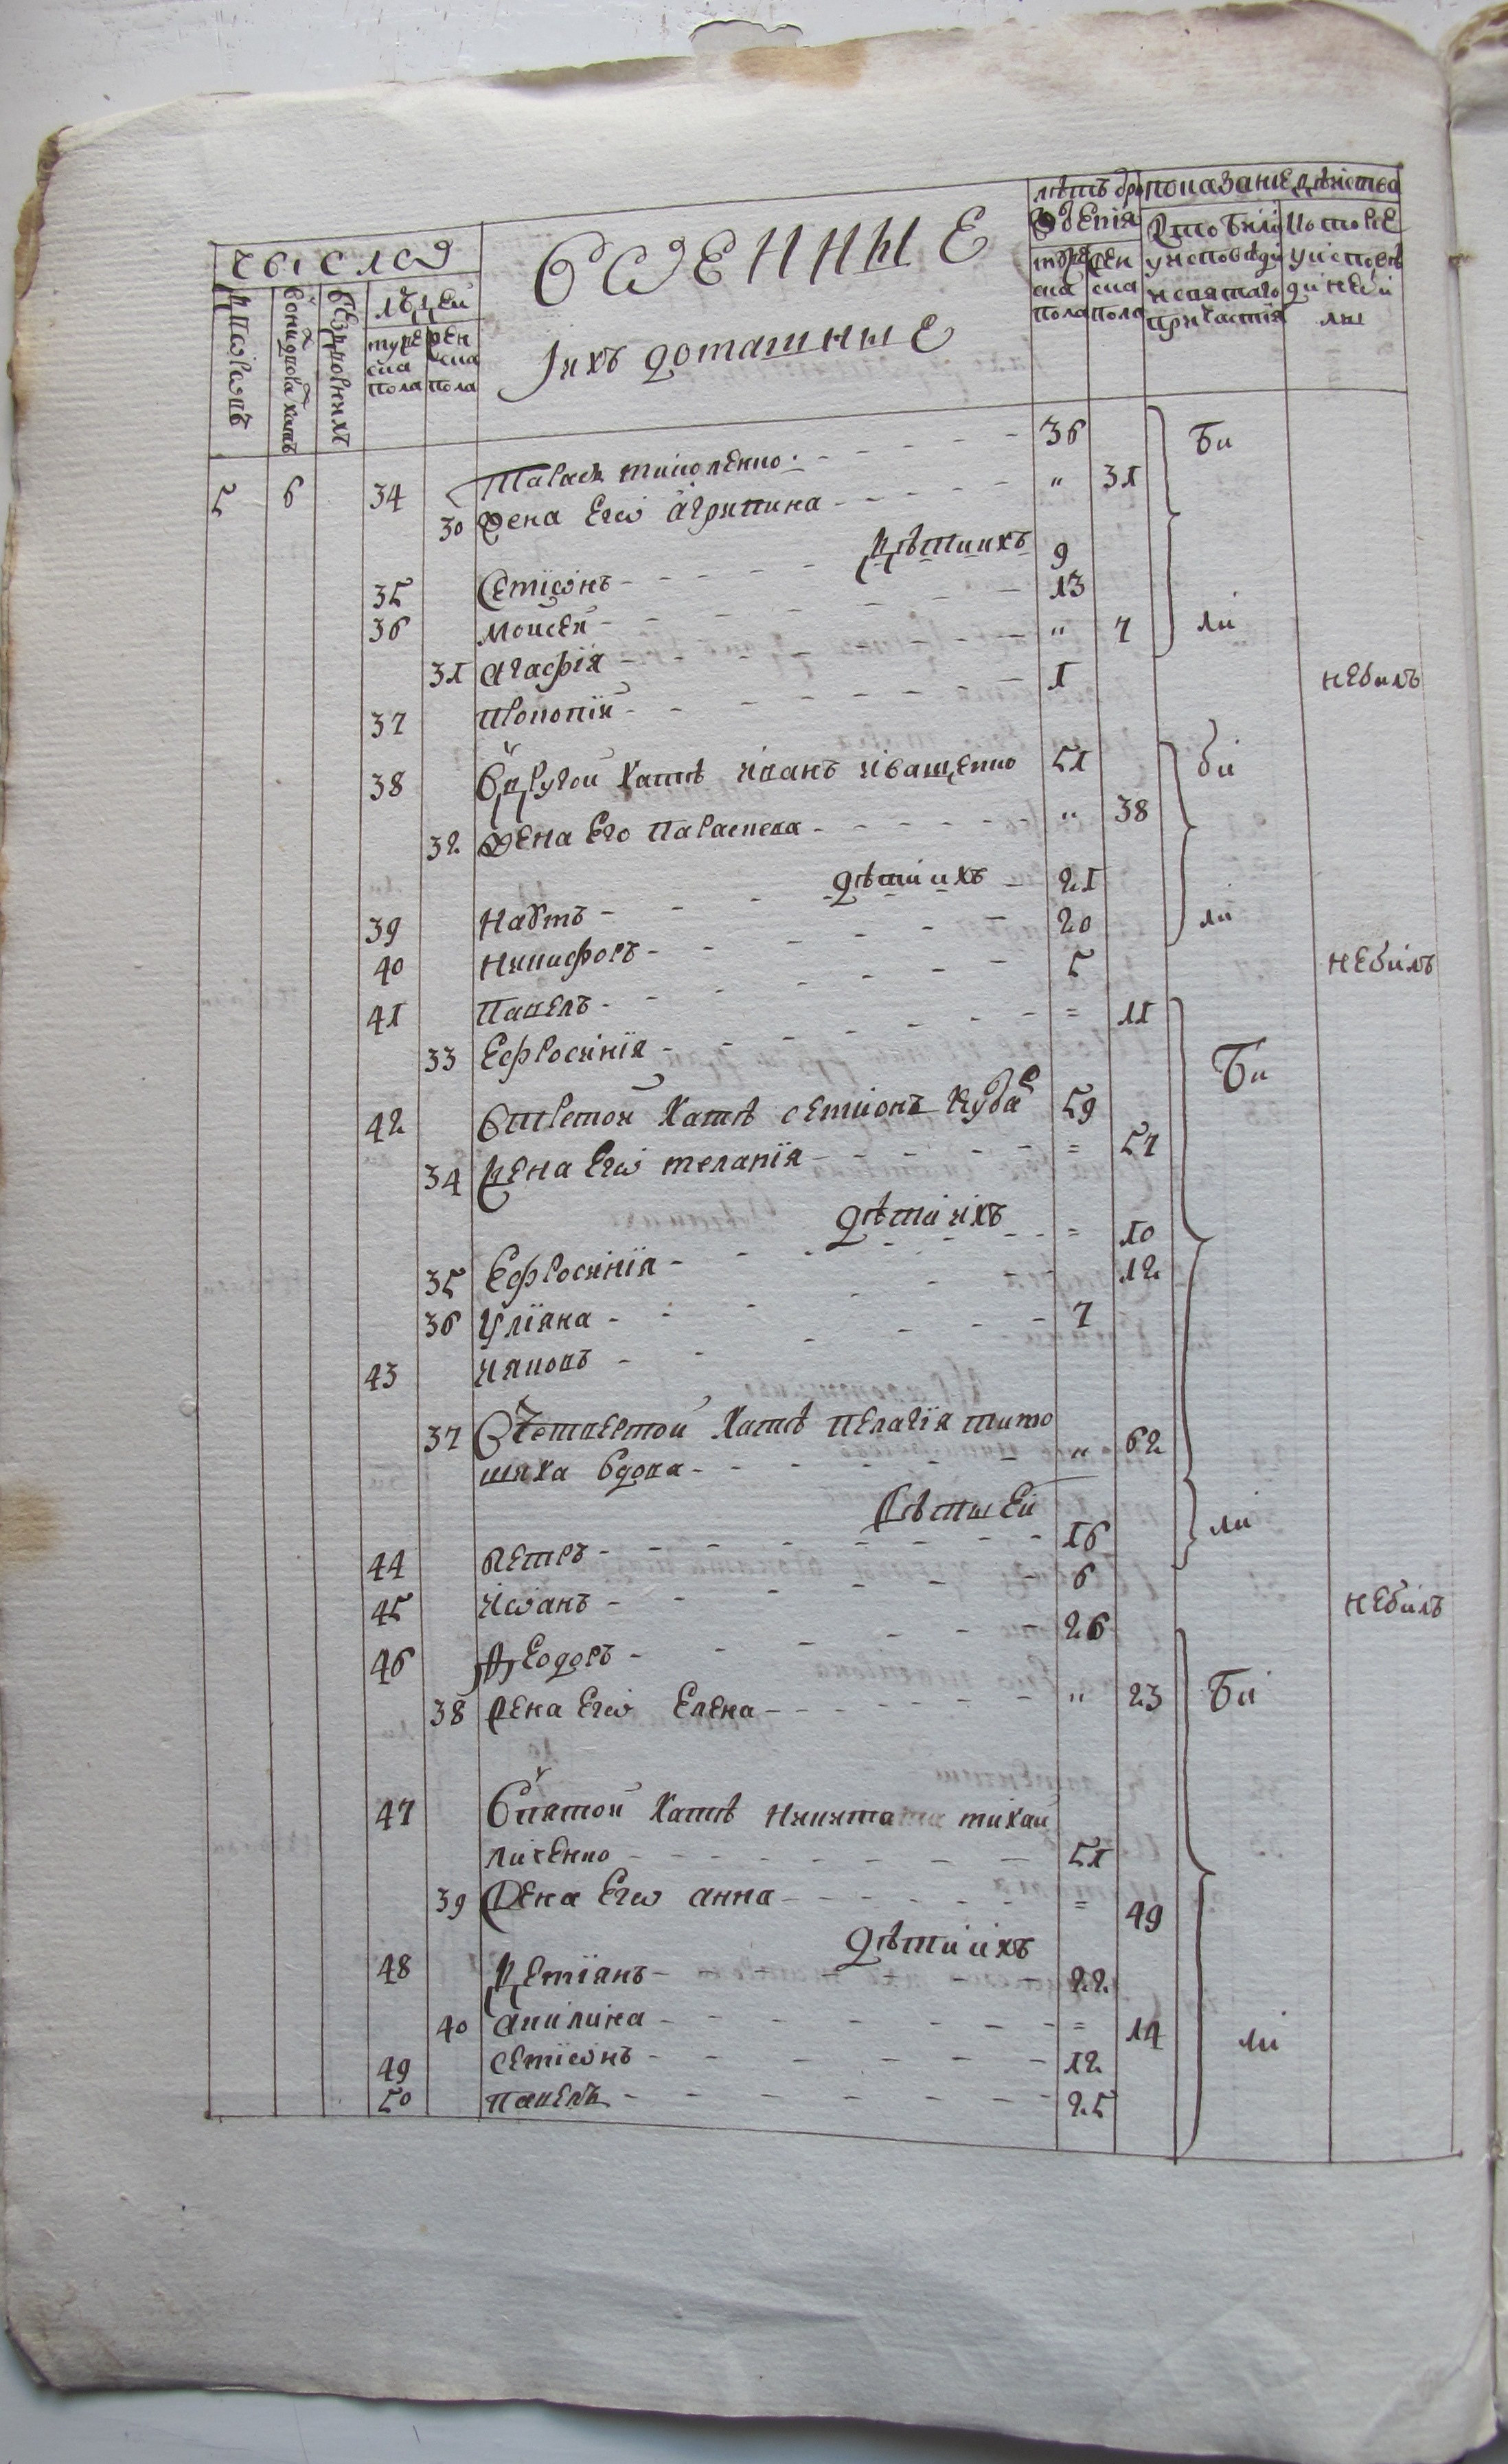 числа
военные
и ихъ домашные
лѣтъ от рождения
показание дѣйства
дворовъ
безгрунтовихъ
людей
мужеска пола
женска пола
мужеска пола
женска пола
кто били у исповѣди и святаго причастія
и кто не у исповѣди не били
5 6 34 Тарасъ 36 Би
30 Жена Егѡ Агрипина " 31
Дѣти ихъ
35 Семіѡнъ 9
36 Моисей 13
31 Агафія " 7 ли
37 Прокопій 1 небилъ
38 В другой хатѣ Иванъ Иващенко 51 би
32 Жена Его Параскева " 38
дѣти ихъ
39 Наумъ 21
40 Никифоръ 20 ли
41 Павелъ 5 небилъ
33 Ефросинія = 11
42 В третой хатѣ Семіонъ 59 Би
34 Жена Егѡ Меланія = 57
Дѣти ихъ
35 Ефросинія = 10
36 Уліяна 12
43 Ияковъ 7
37 В четвертой хатѣ Пелагія Тимо
шиха вдова " 62
Дѣти Ей
44 Петръ 16 ли
45 Иѡанъ 6 небилъ
46 Ѳеодоръ 26
38 Жена Егѡ Елена " 23 Би
47 В пятой хатѣ Никита Михай
личенко 51
39 Жена Егѡ Анна = 49
Дѣти ихъ
48 Демянъ 22
40 Акилина = 14
49 Семіѡнъ 12 ли
50 Павелъ 25